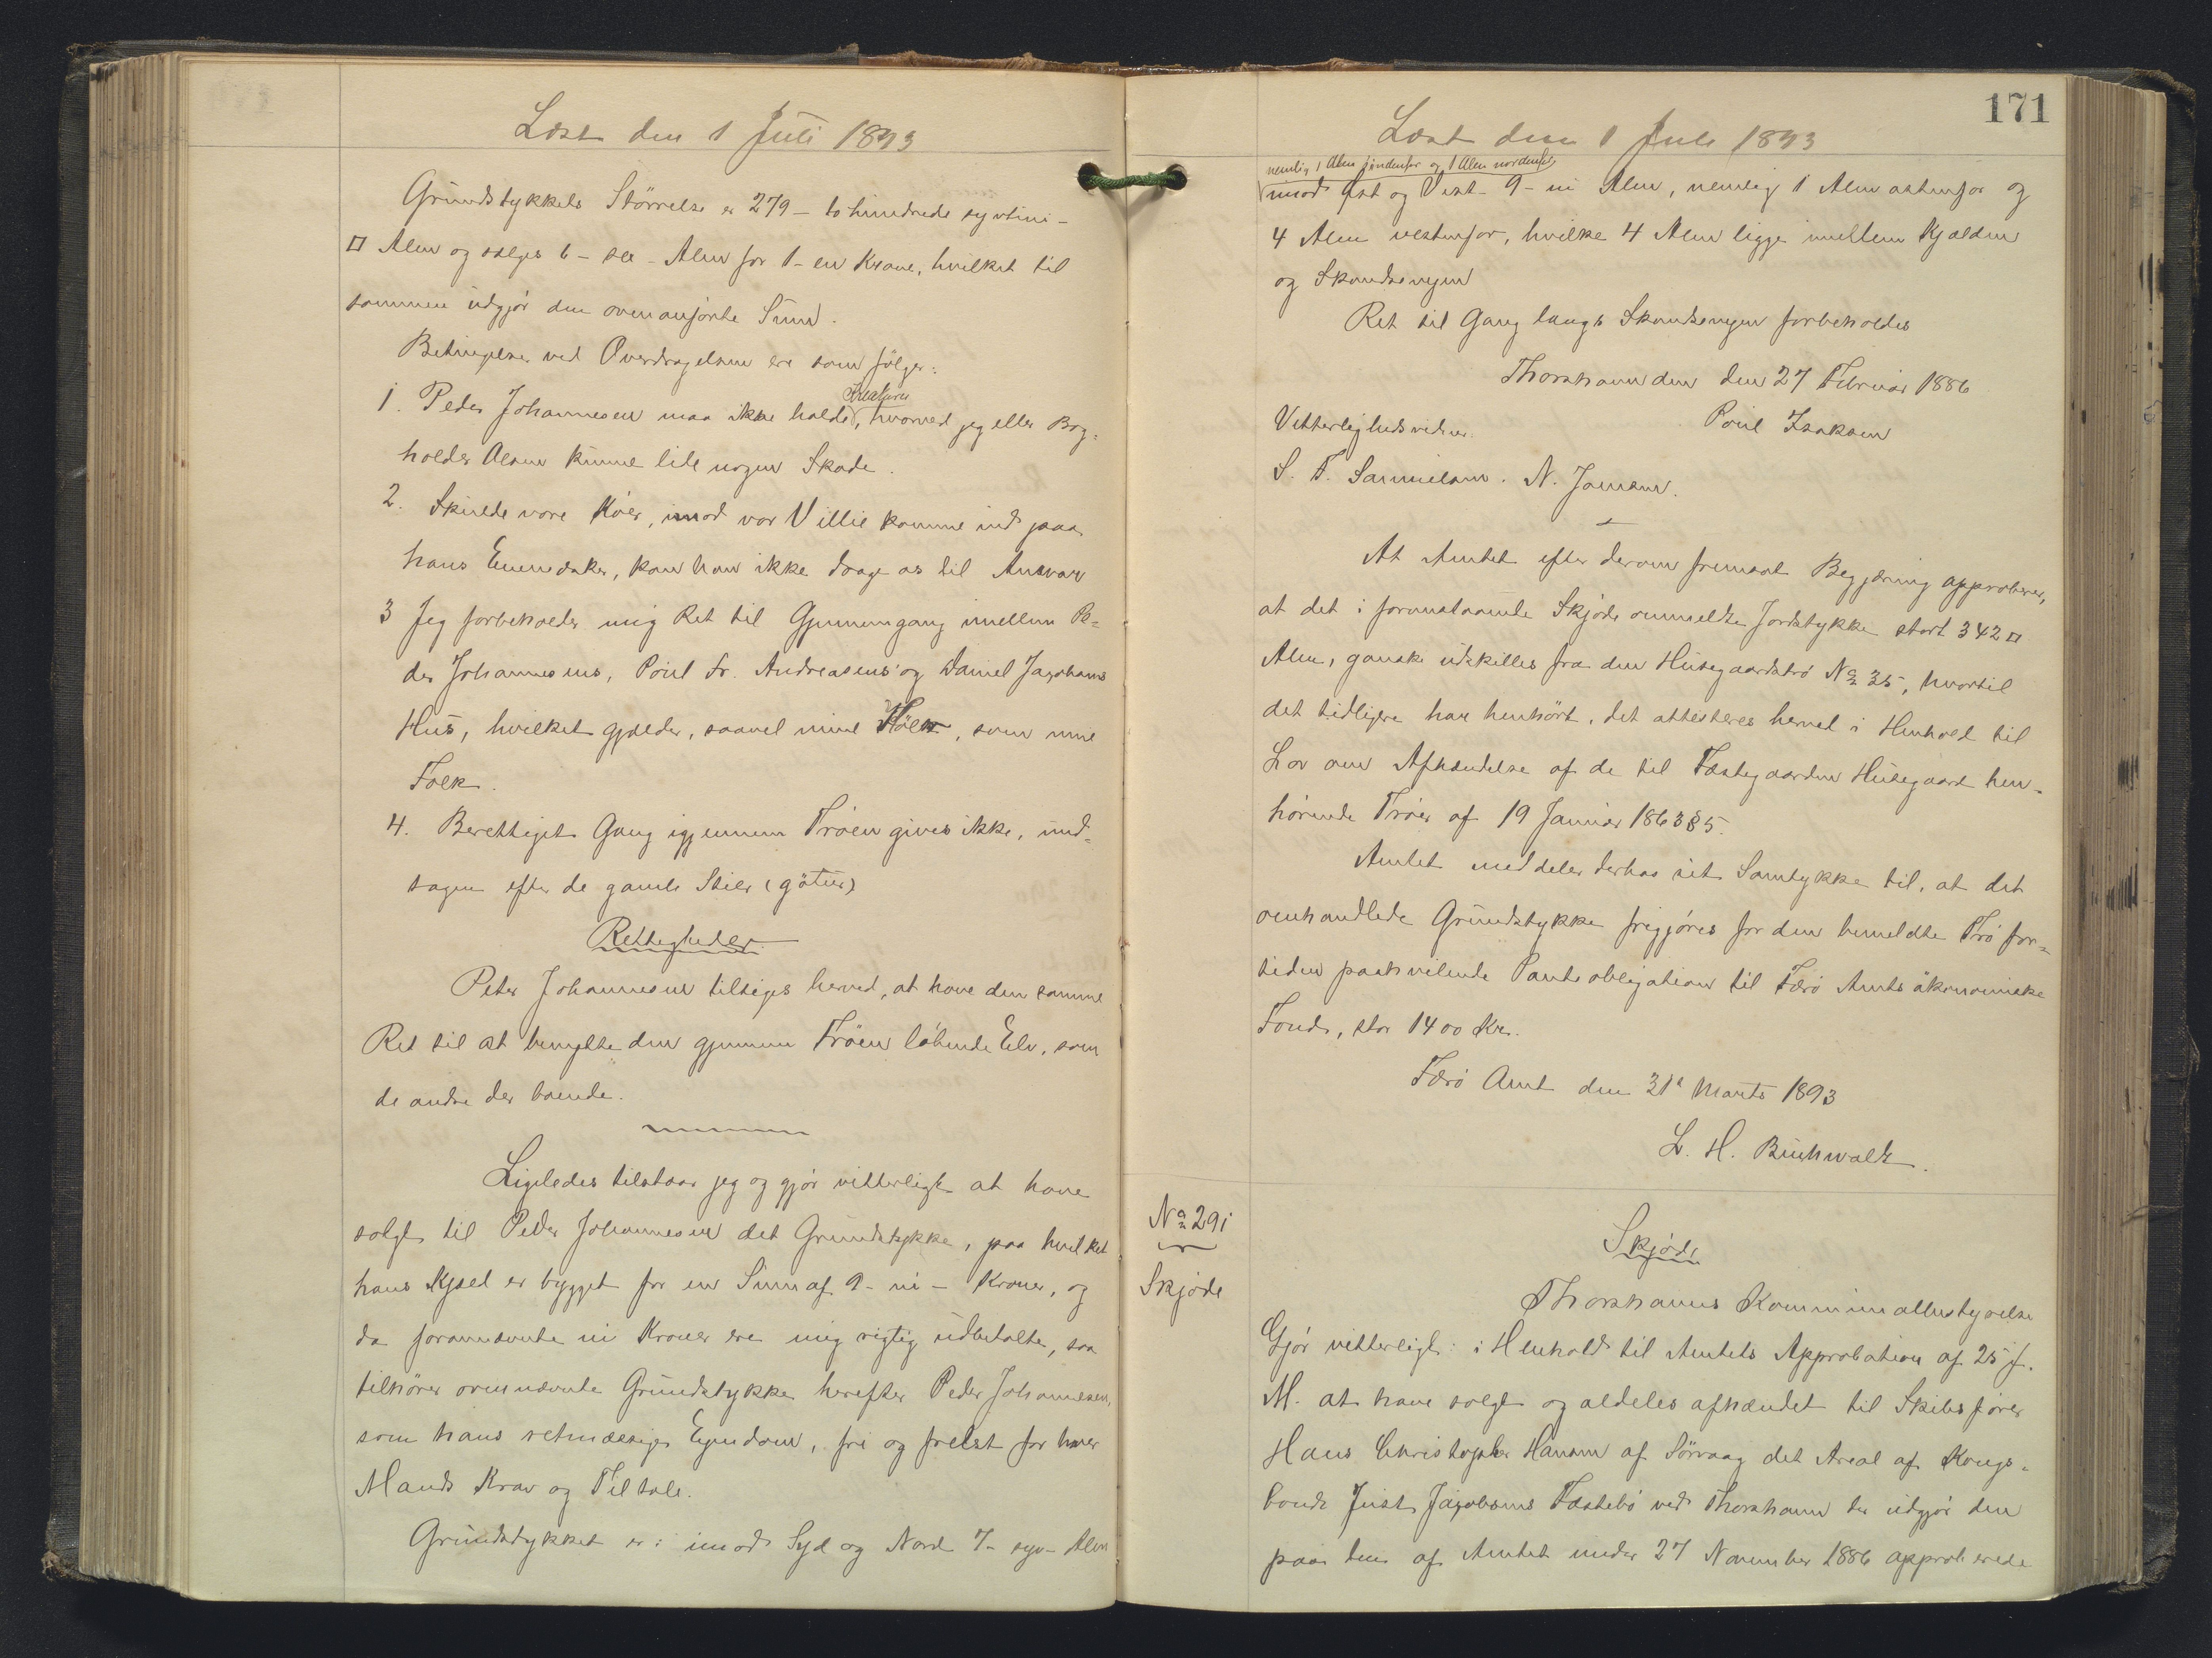 Læst den 1 Juli 1893
Grundstykkets Störrelse er 279 - to hundrede syvtini -
□ Alen og sælges 6 - sex - Alen for 1 - en Krone, hvilket til
sammen udgjör den ovenanførte Sum.
Betingelser ved Overdragelsen ere som følger:
1. Peder Johannesen maa ikke holde Kreaturer, hvorved jeg eller Bog=
holder Olsen kunne lide nogen Skade.
2. Skulde vore Köer, imod vor Villie komme ind paa
hans Enemærker, kan han ikke drage os til Ansvar
3 Jeg forbeholder mig Ret til Gjennemgang imellem Pe=
der Johannesens, Poul Fr. Andreasens og Daniel Jacobsens
Hus, hvilket gjælder, saavel mine Köer, som mine
Folk.
4. Berettiget Gang igjennem Tröen gives ikke, und=
tagen efter de gamle Stier (götur)
Rettigheder.
Peter Johannesen tilsiges herved, at have den samme
Ret til at benytte den gjennem Tröen løbende Elv, som
de andre der boende.
Ligeledes tilstaar jeg og gjör vitterligt at have
solgt til Peder Johannesen det Grundstykke, paa hvilket
hans Kjæld er bygget for en Sum af 9 - ni - Kroner, og
da forannævnte ni Kroner ere mig rigtig udbetalte, saa
tilhører ovennævnte Grundstykke herefter Peder Johannesen,
som hans retmæssige Ejendom, fri og frelst for hver
Mands Krav og Tiltale.
Grundstykket er: imod Syd og Nord 7 - syv - Alen
171
Læst den 1 Juli 1893
nemlig 1 Alen söndenfor og 1 Alen nordenfor,
imod Öst og Vest 9 - ni Alen, nemlig 1 Alen östenfor og
4 Alen vestenfor, hvilke 4 Alen ligge imellem Kjælden
og Skandsevejen
Ret til Gang langs Skandsevejen forbeholdes
Thorshavn den den 27 Februar 1886
Poul Isaksen
Vitterlighedsvidner.
S. F. Samuelsen. N. Joensen.
At Amtet efter derom fremsat Begjæring approberer,
at det i foranstaaende Skjöde ommeldte Jordstykke stort 342 □
Alen, ganske udskilles fra den Husegaardströ No 35, hvortil
det tidligere har henhört, det attesteres herved i Henhold til
Lov om Afhændelse af de til Fæstegaarden Husegaard hen=
hörende Tröer af 19 Januar 1863 § 5.
Amtet meddeler derhos sit Samtykke til, at det
omhandlede Grundstykke frigjöres for den bemeldte Trö for=
tiden paahvilende Panteobligation til Færö Amts ökonomiske
Fond, stor 1400 Kr.
Færö Amt den 31te Marts 1893
L. H. Buchwaldt.
No 291
Skjöde
Skjöde
Thorshavns Kommunalbestyrelse
Gjör vitterligt: i Henhold til Amtets Approbation af 25 f.
M. at have solgt og aldeles afhændet til Skibsfører
Hans Christopher Hansen af Sörvaag det Areal af Kongs=
bonde Just Jacobsens Fæstebö ved Thorshavn der udgjör den
paa den af Amtet under 27 November 1886 approberede